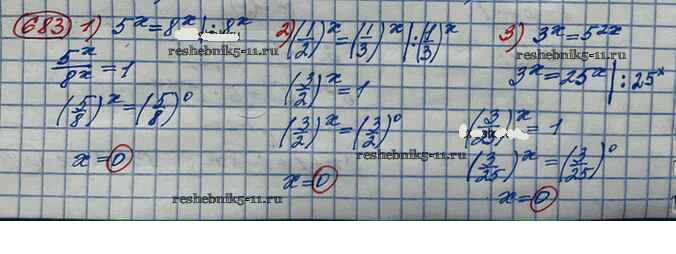 683 1) 5^x = 8^x | : 8^x
5^x/8^x = 1
(5/8)^x = (5/8)^0
x = 0
2) (1/2)^x = (1/3)^x | : (1/3)^x
(3/2)^x = 1
(3/2)^x = (3/2)^0
x = 0
3) 3^x = 5^2x
3^x = 25^x | : 25^x
(3/25)^x = 1
(3/25)^x = (3/25)^0
x = 0
reshebnik5-11.ru
reshebnik5-11.ru
reshebnik5-11.ru
reshebnik5-11.ru